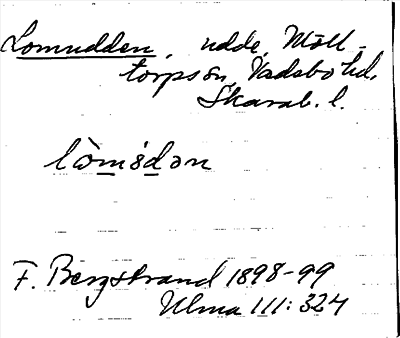 Lomudden, udde, Möll-
torps sn, Vadsbo hd,
Skarab. l.
lòmsdən
F. Bergstrand 1898-99
Ulma 111: 324